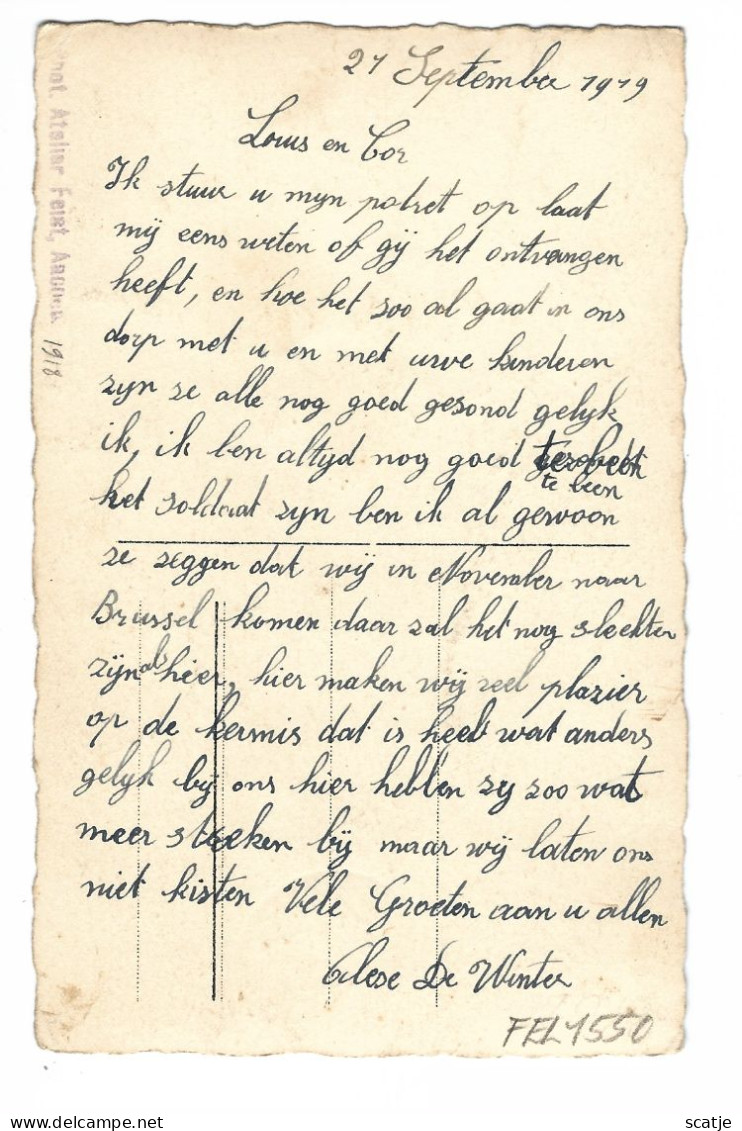 21 September 1919
Louis en Cor
Ik stuur u myn potret op laat
mij eens weten of gij het ontvangen
heeft, en hoe het zoo al gaat in ons
dorp met u en met urve kinderen
zyn ze alle nog goed gesond gelyk
ik, ik ben altyd nog goed
te been
het soldaat zyn ben ik al gewoon
ze zeggen dat wij in November naar
Brussel komen daar zal het nog slechter
zijn als hier, hier maken wij veel plazier
op de kermis dat is heel wat anders
gelyk bij ons hier hebben zy zoo wat
meer streken bij maar wij laten ons
niet kisten Vele Groeten aan u allen
De Winter
FEL1550
Phot. Atelier Feist, Aachen
1918
scatje